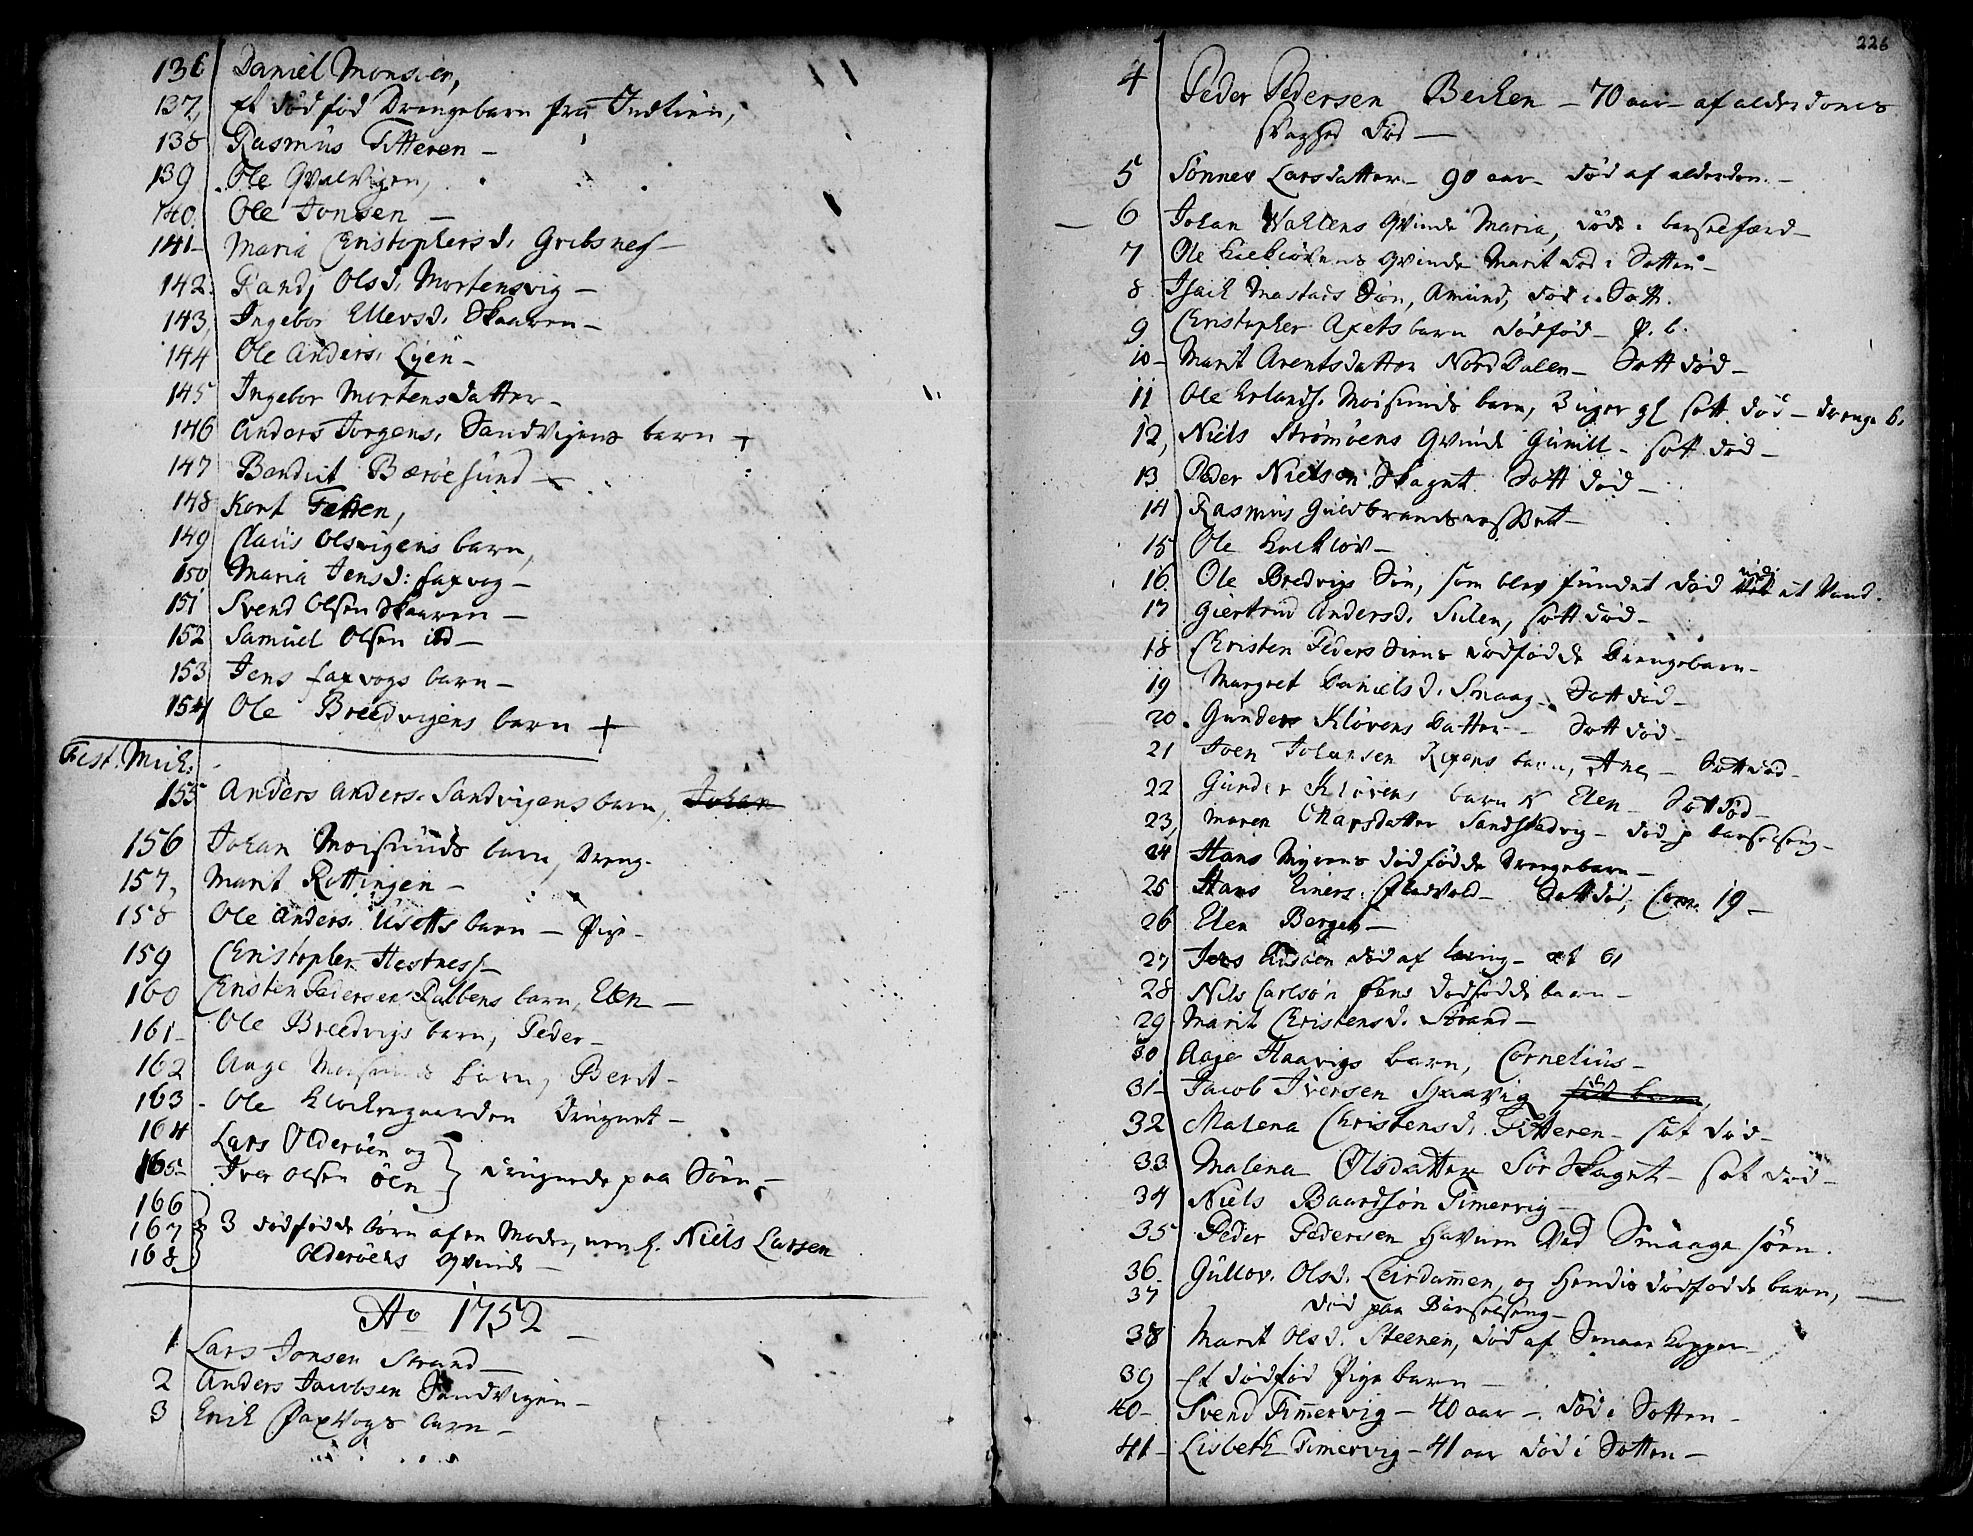 136 Daniel Monsien,
137, Et dödföd Drengebarn fra Indlien,
138 Rasmus Titteren –
139 Ole Qvalvigen,
140. Ole Jonsen –
141– Maria Christophersd. Gribsnes –
142. Rand, Olsd. Mortensvig –
143, Ingebor Ellevsd. Skaaren –
144 Ole Anders. Lyen –
145 Ingebor Mortensdatter –
146 Anders Jorgens. Sandvigens barn +
147 Bendict Bæröesund –
148 Kort Tetten,
149 Claus Olsvigens barn,
150 Maria Jensd: faxvog –
151 Svend Olsen Skaaren –
152 Samuel Olsen ibd –
153 Jens faxvogs barn –
154 Ole Breedvigens barn +
Fest. Mich:
155 Anders Anders. Sandvigens barn, Johan
156 Johan Moisunds barn, Dreng.
157, Marit Rottingen –
158 Ole Anders. Usetts barn – Pige –
159 Christopher Hestness –
160 Christen Pedersen Rulbens barn, Elen –
161– Ole Breedvigs barn, Peder –
162 Aage Moisunds barn, Berit –
163 – Ole Klockergaarden Drugnet –
164 Lars Olderöen og
165– Iver Olsen öen } drugnede paa Söen –
166
167 } 3 dödfödde börn af en Moder, neml. Niels Larsen
168 Olderöens Qvinde –
Ao 1752 –
1 Lars Jonsen Strand –
2 Anders Jacobsen Sandvigen –
3 Erich Faxvogs barn –
226
4 Peder Pedersen Becken – 70 aar – af alderdoms
svaghed död –
5 Sönnev Larsdatter – 90 aar – död af alderdom –
6 Johan Wahlens Qvinde Maria, döde i barselfærd –
7 Ole Kalklövens Qvinde Marit död i Sotten –
8 Isach Mastads Sön, Amund, död i Sott.
9 Christopher Axets barn dödföd – P. b.
10 – Marit Arentsdatter NordDalen – Sott död –
11 Ole Erlands. Moisunds barn, 3 uger gl sott död – drenge b.
12, Niels Strömöens Qvinde Gunill – sott död –
13 Peder Nielsen Skagnet Sott död –
14 Rasmus Guldbrands
15 Ole Kalklöv –
16. Ole Bredvigs Sön, som blev fundet död ved et Vand.
17 Giertrud Andersd. Sulen, sott död –
18 Christen Peders Siens dödfödde Drengebarn –
19 Margret Danielsd. Smaag – Sott död –
20. Gunder Klövens datter – Sott död –
21 Iven Johansen Rexens barn, Ane, – Sott död –
22 Gunder Klövens barn N Elen – Sott död –
23, Maren Olsdatter Sandstadvig – död i barselseng –
24 Hans Myrens dödfödde Drengebarn –
25 Hans Einers. Fladvold – Sott död, Com. 19 –
26 Elen Berget –
27 död af
28 Nils Carlsön dödfödde barn –
29 – Marit Christensd. Strand –
30 Aage Haavigs barn, Cornelius –
31 – Jacob Iversen Haavig
32 Malena Christensd. Titteren – sot död –
33 Malena Olsdatter Sör Skagnet – sot död –
34 Niels Baardsön Timervig –
35 Peder Pedersen Havum Ved Smaage söen.
36. Gullov. Olsd. Leirdammen, og hendis dödfödde barn, –
37 död paa Barselseng –
38 Marit Olsd. Steenen, död af Smaae kopper –
39 Et dödföd Pige barn –
40 – Svend Timervig – 40 aar – död i Sotten –
41 – Lisbeth Timervig – 41 aar död i Sotten –